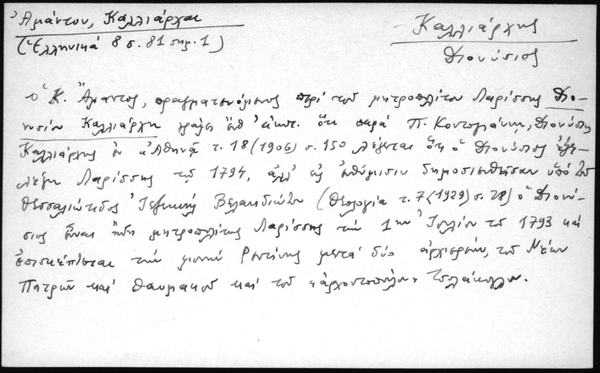 Ἀμάντου, Καλλιάρχαι
(Ἑλληνικά 8 σ. 81 σημ. 1)
Καλλιάρχης
Διονύσιος
ὁ Κ. Ἄμαντος, πραγματευόμενος περὶ τοῦ μητροπολίτου Λαρίσσης Διο-
νυσίου Καλλιάρχη γράφει ὅτι παρά Π. Κοντογιάννη, Διονύσιος
Καλλιάρχης ἐν Ἀθηνᾷ τ. 18 (1906) σ. 150 λέγεται ὅτι ὁ Διονύσιος ἐξε-
λέγη Λαρίσσης τῷ 1794, ἀλλ' ὡς ἐνθύμισιν δημοσιευθεῖσαν ὑπὸ τοῦ
Θεσσαλιώτιδος Ἰεζεκιὴλ Βελανιδιώτου (Θεολογία τ. 7 (1929) σ. 28) ὁ Διονύ-
σιος εἶναι ἤδη μητροπολίτης Λαρίσσης τὴν 1ην Ἰουλίου τοῦ 1793 καὶ
ἐπισκέπτεται τὴν μονὴν Ρεντίνης μετὰ δύο ἀρχιερέων, τοῦ Νέων
Πατρῶν καὶ Θαυμακοῦ καὶ τοῦ «ἀρχοντοπούλου» Τσολάκογλου.